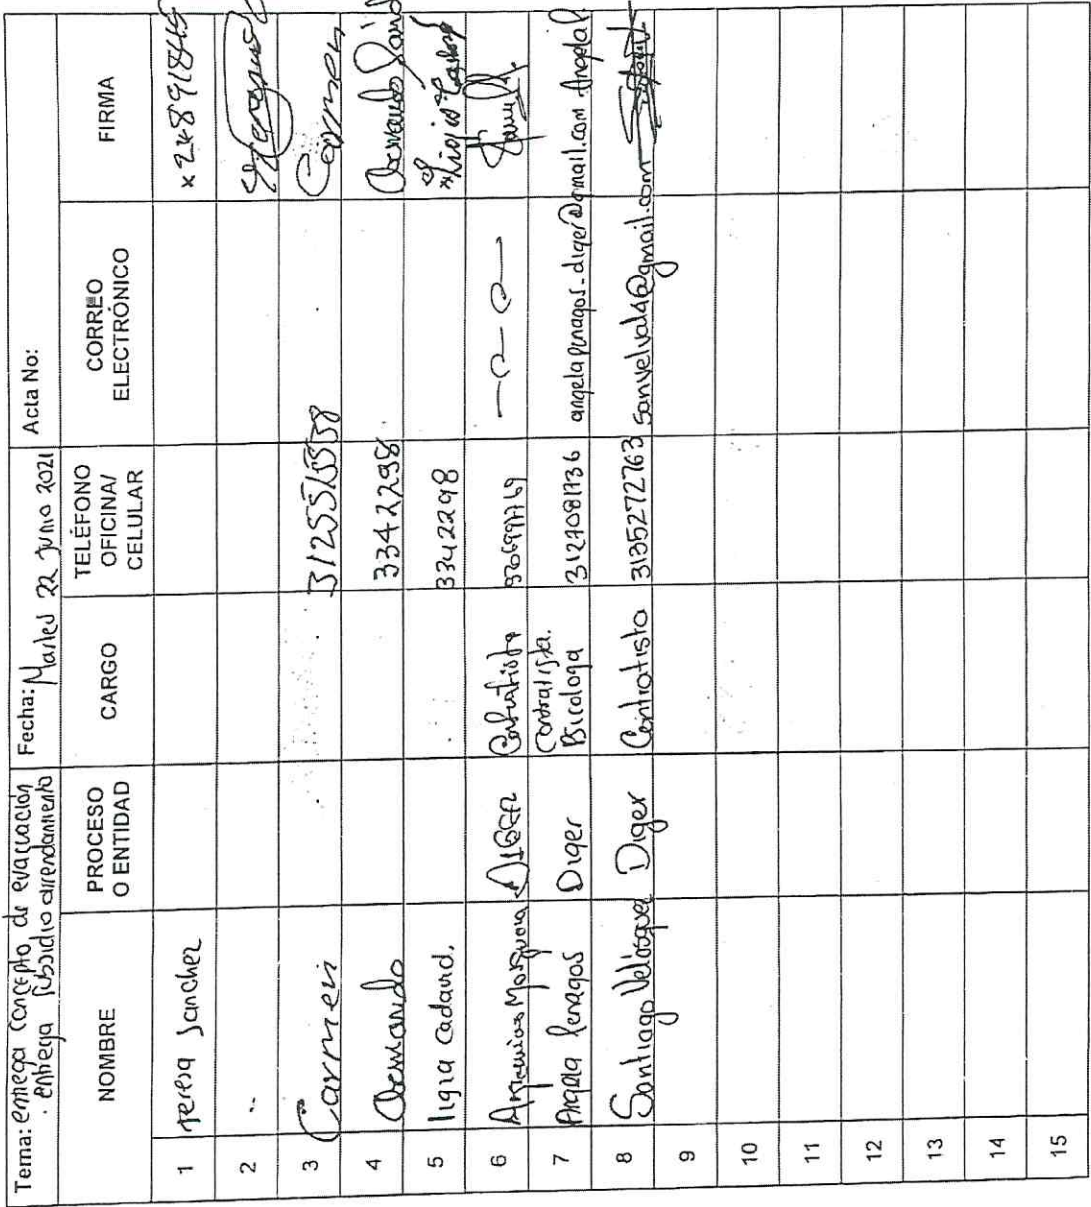 Tema: entrega concepto de evacuación
. entrega subsidio arrendamiento
Fecha: Martes 22 Junio 2021
Acta No:
NOMBRE
PROCESO O ENTIDAD
CARGO
TELÉFONO OFICINA/ CELULAR
CORREO ELECTRÓNICO
FIRMA
1 teresa Sanchez
2
3 Carmen Carmen
4 3342298
5 ligia Cadavid. 3342298
6 Contratista
7 Angela Penagos Diger Contratista. Psicologa 3127081736 angelapenagos.diger@gmail.com Angela P.
8 Santiago Velásquez Diger Contratista 3135272763 sanvelval4@gmail.com
9
10
11
12
13
14
15